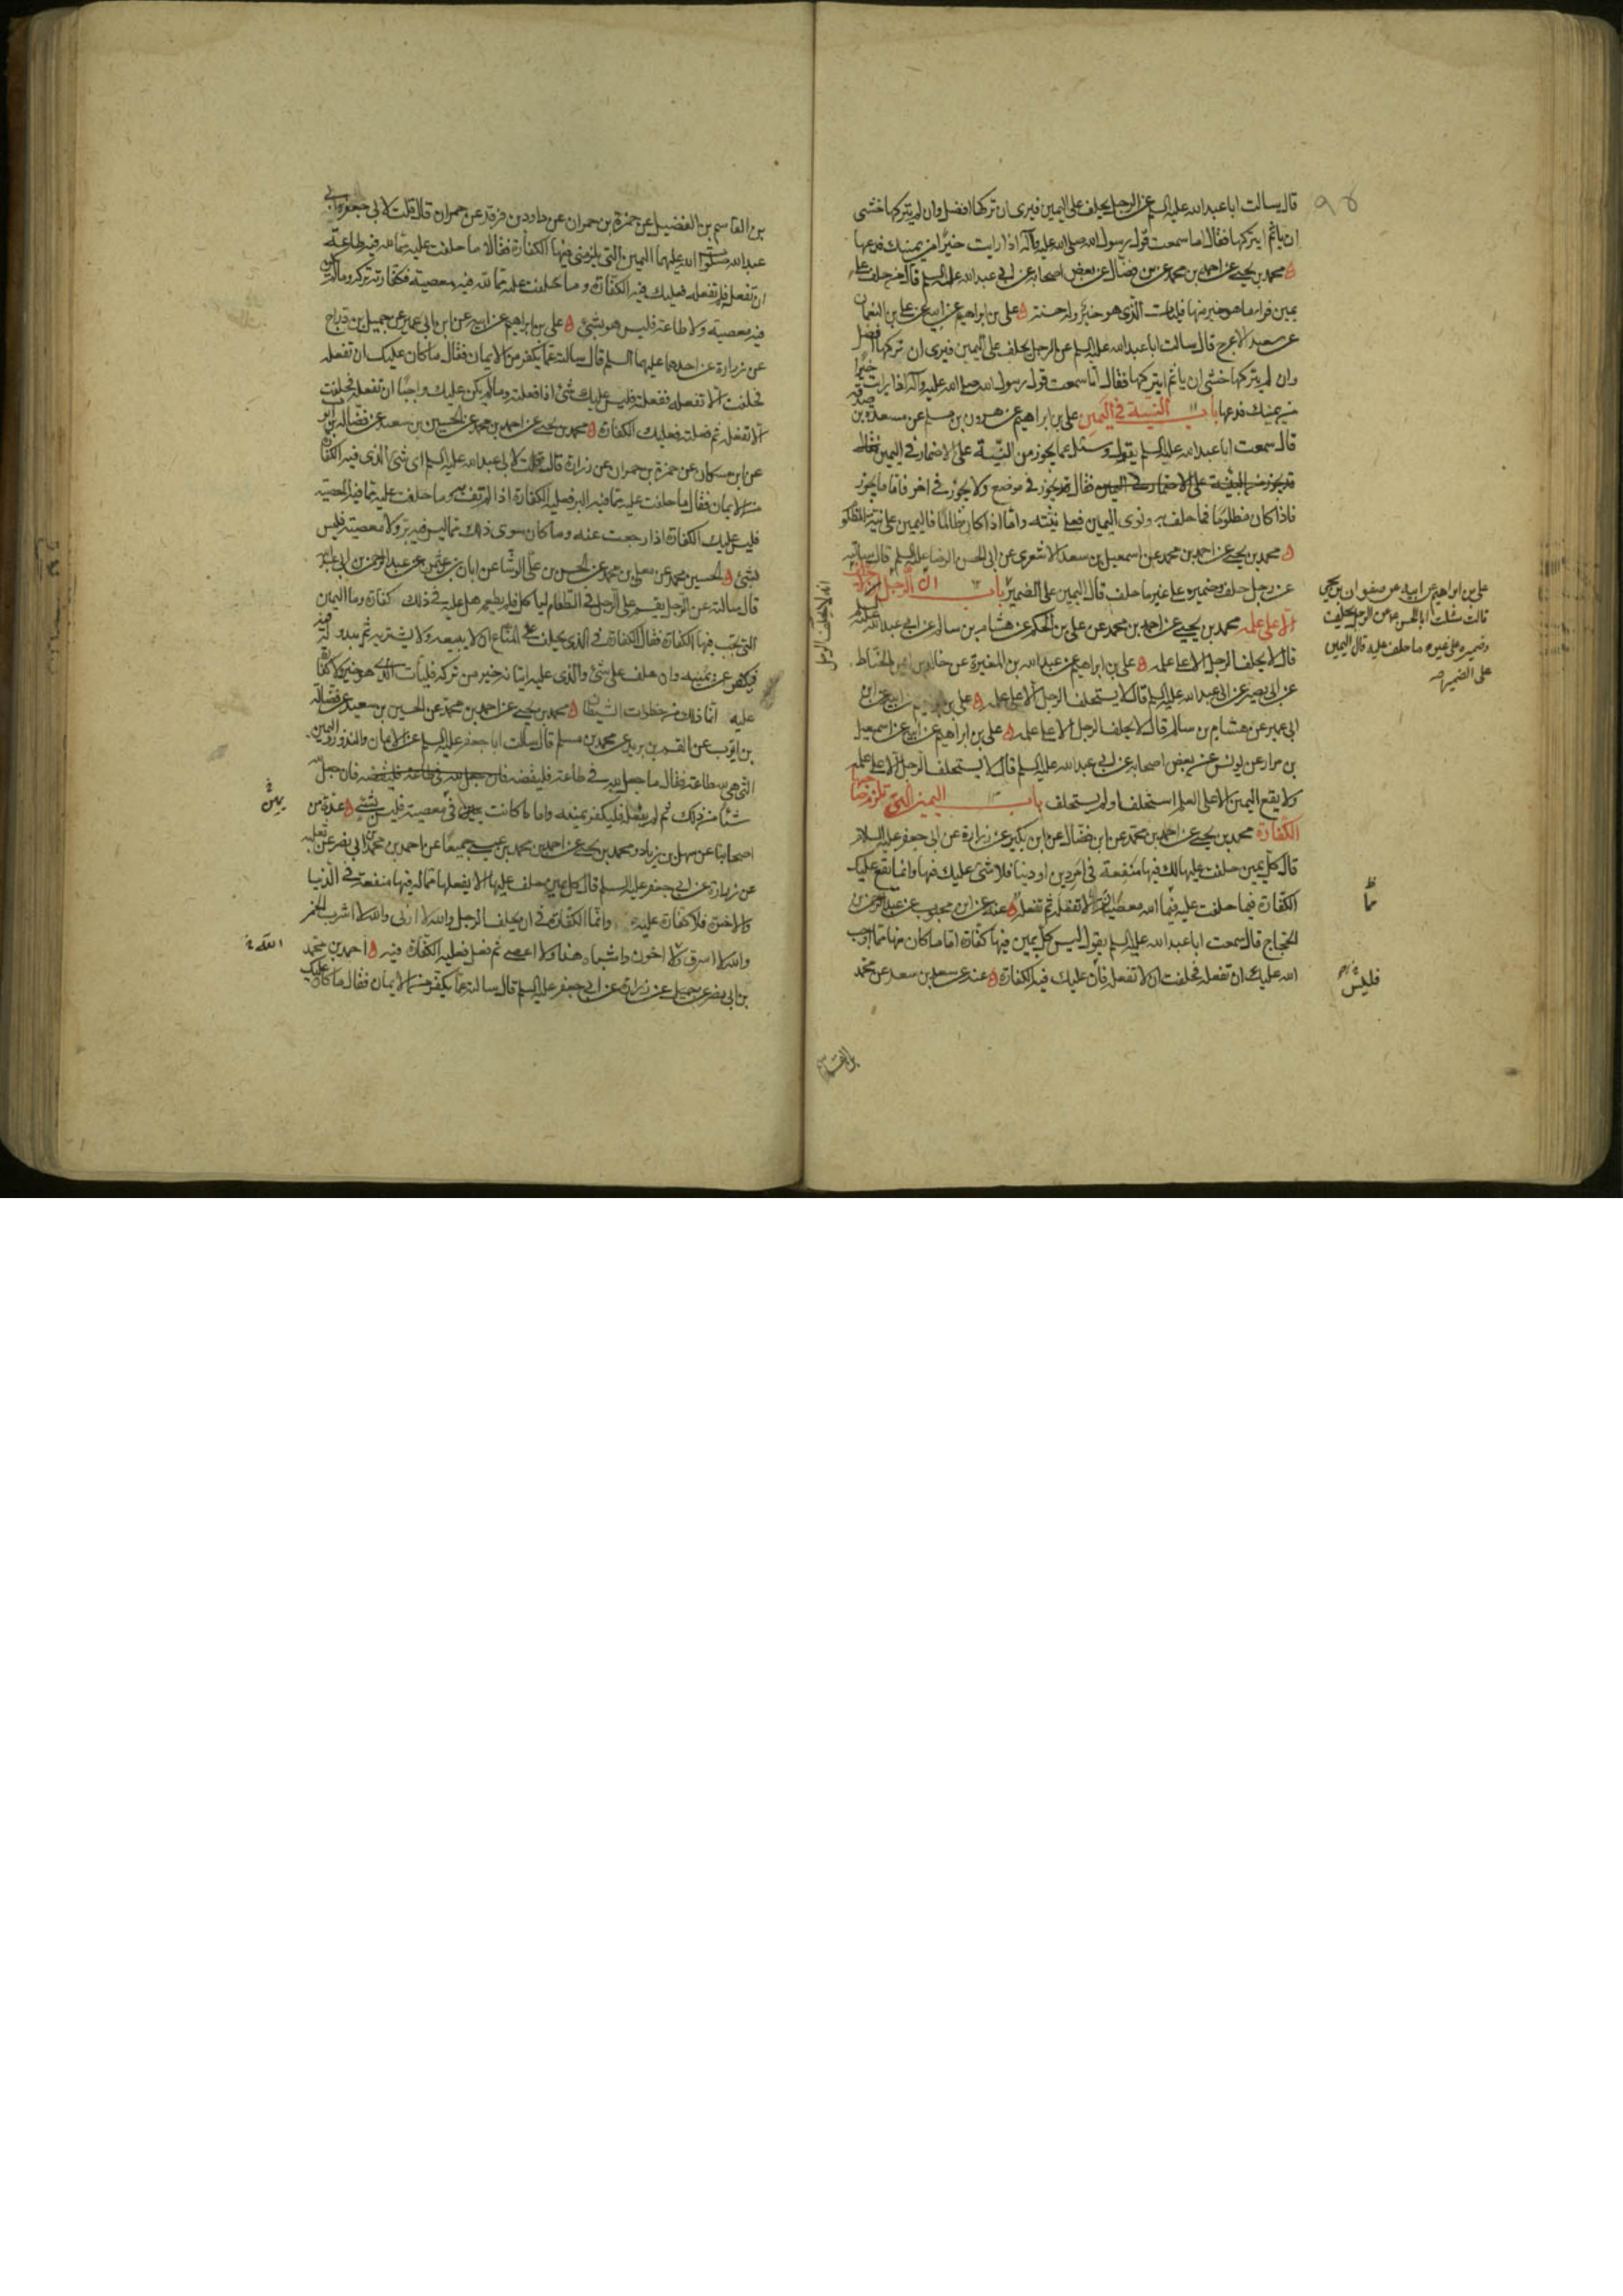 قال سالت ابا عبد الله عليه السلم عن الرجل يحلف على اليمين فيرى ان تركها افضل وان لم يتركها خشى
ان ياثم ايتركها فقال اما سمعت قول رسول الله صلى الله عليه وآله اذا رايت خيرا من يمينك فدعها
محمد بن يحيى عن احمد بن محمد عن بن فضال عن بعض اصحابه عن ابى عبد الله عليه السلم قال من حلف على
يمين فراى ما هو خير منها فليات الذى هو خير وله حسنة على بن ابراهيم عن ابيه عن على بن النعمان
عن سعيد الاعرج قال سالت ابا عبد الله عليه السلم عن الرجل يحلف على اليمين فيرى ان تركها افضل
وان لم يتركها خشى ان ياثم ايتركها فقال اما سمعت قول رسول الله صلى الله عليه وآله اذا رايت خيرا
من يمينك فدعها باب النية فى اليمين على بن ابراهيم عن هرون بن مسلم عن مسعدة بن صدقه
قال سمعت ابا عبد الله عليه السلم يقول وسئل عما يجوز من النية على الاضمار فى اليمين فقال
قد يجوز فى موضع ولا يجوز فى اخر فاما ما يجوز
فاذا كان مظلوما فما حلف به ونوى اليمين فعلى نيته واما اذا كان ظالما فاليمين على نية المظلوم
محمد بن يحيى عن احمد بن محمد عن اسمعيل بن سعد الاشعرى عن ابى الحسن الرضا عليه السلم قال سالته
عن رجل حلف وضميره على غير ما حلف قال اليمين على الضمير باب
الا على علمه محمد بن يحيى عن احمد بن محمد عن على بن الحكم عن هشام بن سالم عن ابى عبد الله عليه السلم
قال لا يحلف الرجل الا على علمه على بن ابراهيم عن عبد الله بن المغيرة عن خالد بن الحناط
عن ابى بصير عن ابى عبد الله عليه السلم قال لا يستحلف الرجل الا على علمه على بن ابراهيم عن ابيه عن ابن
ابى عمير عن هشام بن سالم قال لا يحلف الرجل الا على علمه على بن ابراهيم عن ابيه عن اسمعيل
بن مرار عن يونس عن بعض اصحابه عن ابى عبد الله عليه السلم قال لا يستحلف الرجل الا على علمه
ولا يقع اليمين الا على العلم استحلف او لم يستحلف باب اليمين التى تلزم صاحبها
الكفارة محمد بن يحيى عن احمد بن محمد عن ابن فضال عن ابن بكير عن زرارة عن ابى جعفر عليه السلام
قال كل يمين حلفت عليها لك فيها منفعة فى امر دين او دنيا فلا شئ عليك فيها وانما تقع عليك
الكفارة فيما حلفت عليه فيما الله معصية الا تفعله ثم تفعله عنه عن ابن محبوب عن عبد الرحمن بن
الحجاج قال سمعت ابا عبد الله عليه السلم يقول ليس كل يمين فيها كفارة اما ما كان منها مما اوجب
الله عليك ان تفعله فحلفت ان لا تفعله فان عليك فيه الكفارة عنه عن سعد عن محمد
على بن ابراهيم عن ابيه عن صفوان بن يحيى
قالت سئلت ابا الحسن عن الرجل يحلف
وضميره على غير ما حلف عليه قال اليمين
على الضمير
فليس
بن القاسم
بن القاسم بن الفضيل عن حمزة بن حمران عن داود بن فرقد عن حمران قال قلت لابى جعفر وابى
عبد الله صلوات الله عليهما اليمين التى يلزمنى فيها الكفارة فقالا ما حلفت عليه مما لله فيه طاعة
ان تفعله فلم تفعله فعليك فيه الكفارة وما حلفت عليه مما لله فيه معصية فكفارته تركه وما لم يكن
فيه معصية ولا طاعة فليس هو بشئ على بن ابراهيم عن ابيه عن ابن ابى عمير عن جميل بن دراج
عن زرارة عن احدهما عليهما السلم قال سالته عما يكفر من الايمان فقال ما كان عليك ان تفعله
فحلفت الا تفعله ففعلته فليس عليك شئ اذا فعلته وما لم يكن عليك واجبا ان تفعله فحلفت
الا تفعله ثم فعلته فعليك الكفارة محمد بن يحيى عن احمد بن محمد عن الحسين بن سعيد عن فضالة بن ايوب
عن ابن مسكان عن حمزة بن حمران عن زرارة قال قلت لابى عبد الله عليه السلم اى شئ الذى فيه الكفارة
من الايمان فقال ما حلفت عليه مما فيه البر فعليه الكفارة اذا لم تف به وما حلفت عليه مما فيه المعصية
فليس عليك الكفارة اذا رجعت عنه وما كان سوى ذلك مما ليس فيه بر ولا معصية فليس
بشئ الحسين بن محمد عن معلى بن محمد عن الحسن بن على الوشا عن ابان بن عثمن عن عبد الرحمن بن ابى عبد الله
قال سالته عن الرجل يقسم على الرجل فى الطعام لياكل فلم يطعم هل عليه فى ذلك كفارة وما اليمين
التى تجب فيها الكفارة فقال الكفارة فى الذى يحلف على المتاع ان لا يبيعه ولا يشتريه ثم يبدو له فيه
فيكفر عن يمينه وان حلف على شئ والذى عليه اتيانه خير من تركه فليات الذى هو خير ولا كفارة
عليه انما ذلك من خطوات الشيطان محمد بن يحيى عن احمد بن محمد عن الحسين بن سعيد عن فضالة
بن ايوب عن القسم بن بريد عن محمد بن مسلم قال سالت ابا جعفر عليه السلم عن الايمان والنذور واليمين
التى هى لله طاعة فقال ما جعل لله فى طاعة فليقضه فان جعل لله
شيئا من ذلك ثم لم يفعله فليكفر يمينه واما ما كانت يمين فى معصية فليس بشئ عدة من
اصحابنا عن سهل بن زياد ومحمد بن يحيى عن احمد بن محمد بن عيسى جميعا عن احمد بن محمد بن ابى نصر عن ثعلبه
عن زرارة عن ابى جعفر عليه السلم قال كل يمين حلف عليها الا يفعلها مما له فيها منفعة فى الدنيا
والاخرة فلا كفارة عليه وانما الكفارة فى ان يحلف الرجل والله لا ازنى والله لا اشرب الخمر
والله لا اسرق والله لا اخون واشباه هذا ولا اعصى ثم فعل فعليه الكفارة فيه احمد بن محمد
بن ابى نصر عن جميل عن زرارة عن ابى جعفر عليه السلم قال سالته عما يكفر من الايمان فقال ما كان عليك
يمين
الله